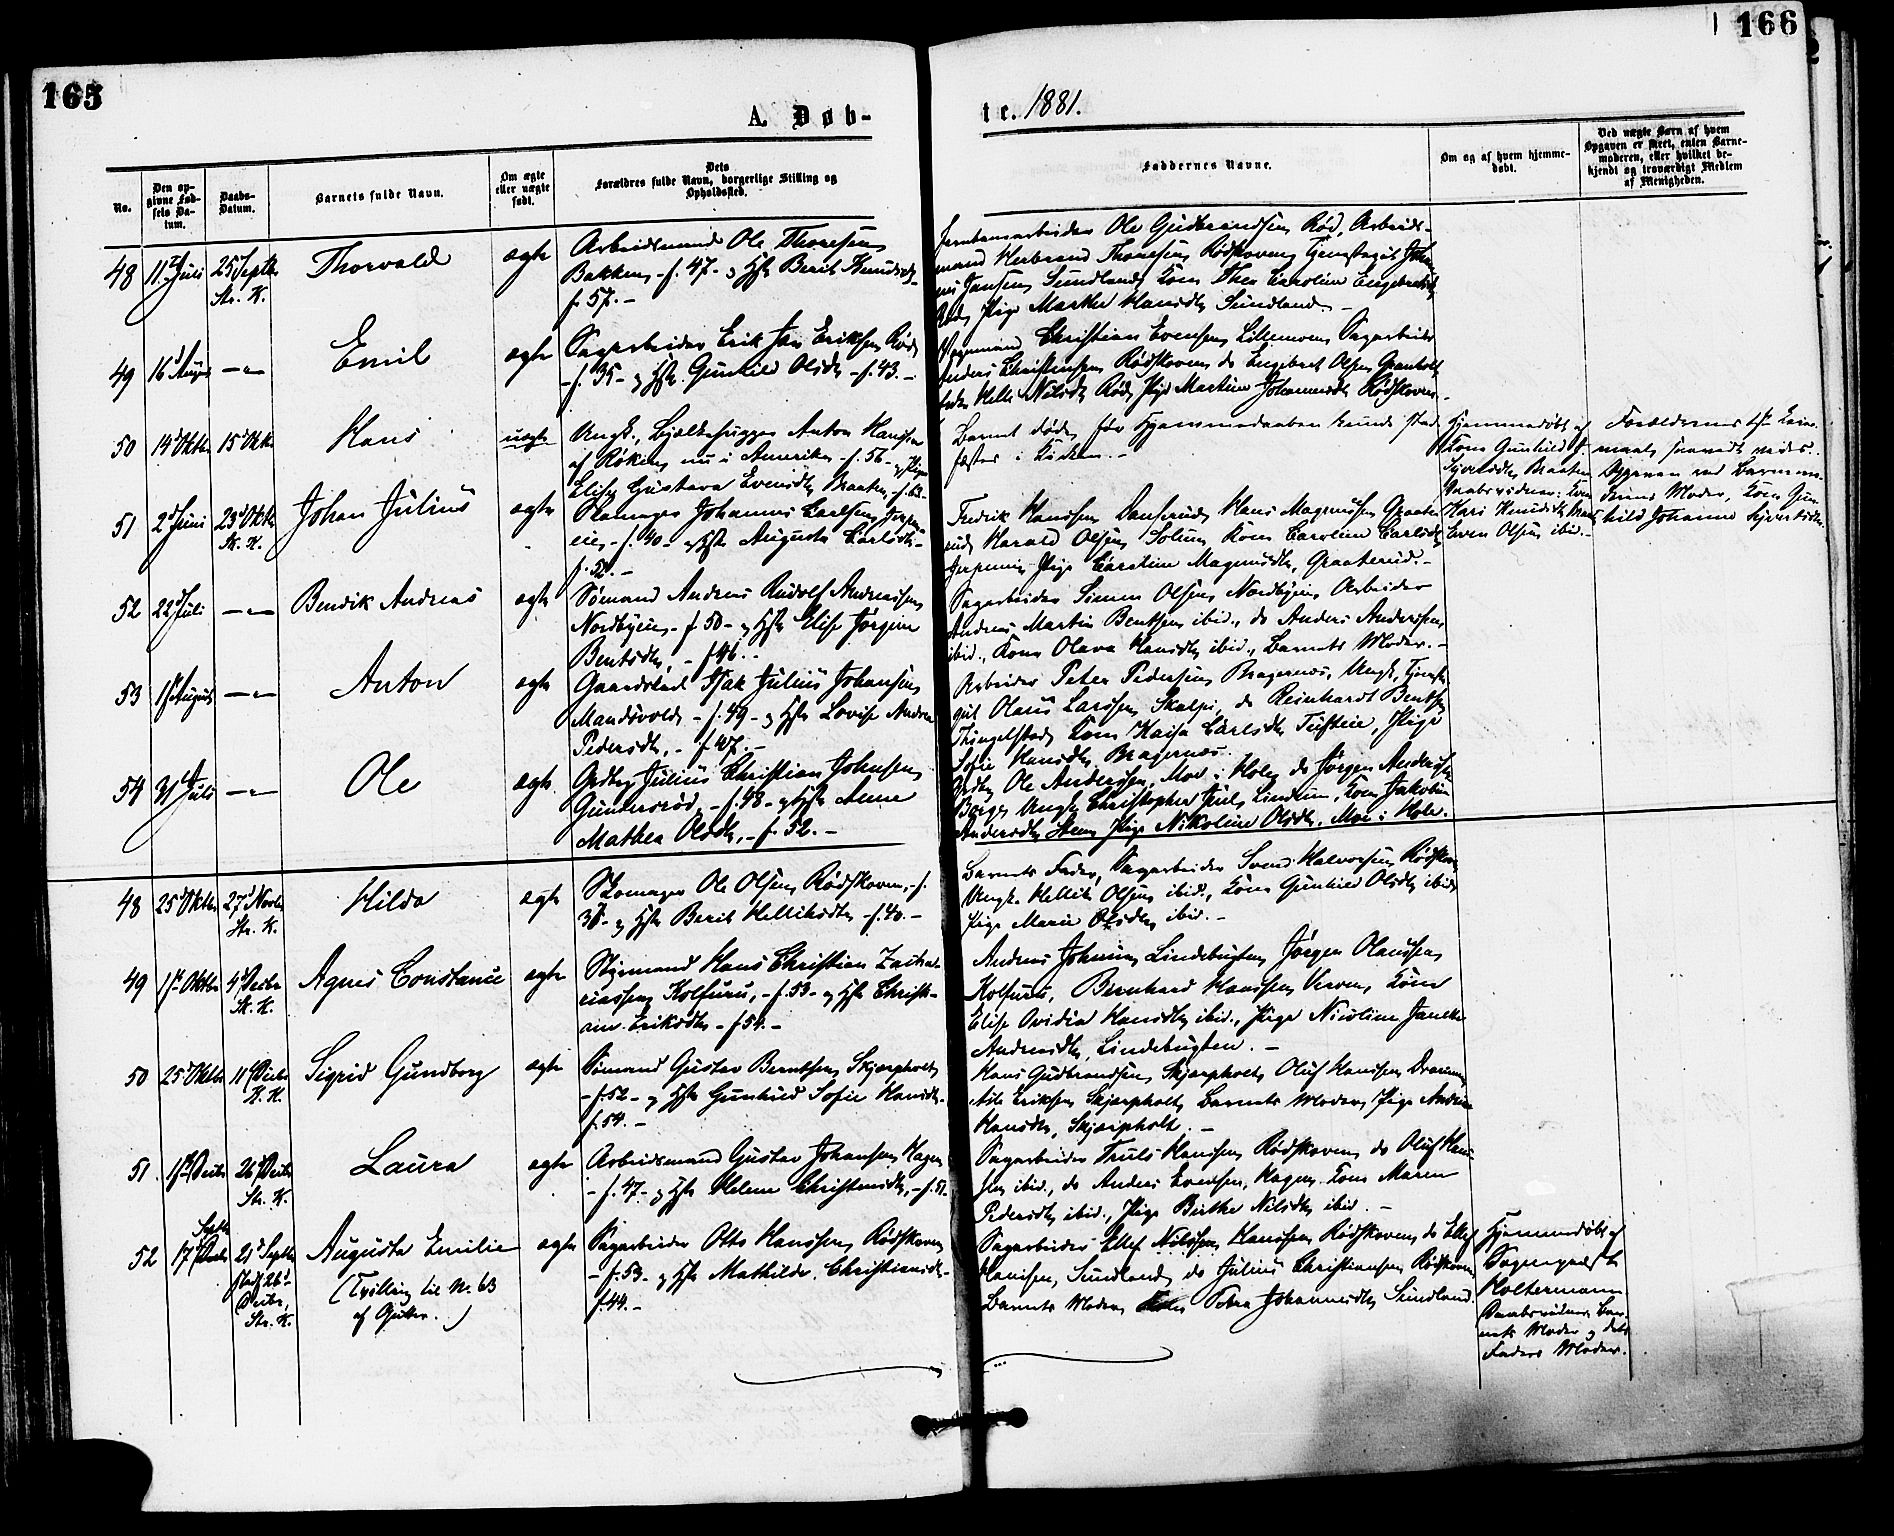 165
166
A. Døb-
te. 1881.
No.
Den opgivne Fødsels Datum.
Daabs-Datum.
Barnets fulde Navn.
Om ægte eller uægte født.
Dets Forældres fulde Navn, borgerlige Stilling og Opholdssted.
Faddernes Navne.
Om og af hvem hjemmedøbt.
Ved uægte Børn af hvem Opgaven er skeet, enten Barnemoderen, eller hvilket bekjendt og troværdigt Medlem af Menigheden.
48 11 Juni 25 Septbr Str. K. Thorvald ægte
Arbeidsmand Ole Thoresen
Bakken, - f. 47 - og Hstr Berit Knudsdtr
f. 57. -
Ole Gudbrandsen Rød, Arbeids-
mand Herbrand Thoresen Rødskoven, Tjenestegut
Jansen Sundland, Kone Thea Caroline Engebretsdtr
Rød, Pige Marthe Hansdtr Sundland. -
49 16 Aug -"- Emil ægte
Sagarbeider Erik Jan Eriksen Rød
- f. 35 - og Hstr. Gunhild Olsdtr - f. 43. -
Christian Evensen Lillemoen, Sagarbeider
Anders Christensen Rødskoven, do Engebret Olsen Granholt
Helle Nilsdtr Rød, Pige Martine Johannesdtr Rødskoven. -
50 14 Oktbr 15 Oktbr Hans uægte
Ungk., Bjælkehugger Anton Hansen
af Røken, nu i Amerika - f. 56 - og Pige
Elise Gustava Evensdtr Braaten, - f. 62 -
Barnet døde, før Hjemmedaaben kunde stad-
fæstes i Kirken. -
Hjemmedøbt af
Kone Gunhild J.
Syvertsdtr Braaten
Daabsvidner: Kone
Kari Knudsdtr
Even Olsen ibid. -
Forældrenes 1ste Leier-
maal, saavidt vides.
Opgaven ved Barnemo-
derens Moder, Kone Gun-
hild Johanne Syvertsdtr.
51 2 Juni 23 Oktbr St. K. Johan Julius ægte
Skomager Johannes Carlsen Jerpen-
eie, - f. 40 - og Hstr Augusta Carlsdtr -
f. 52. -
Fredrik Hansen Dansrud, Hans Magnusen Graate-
rud, Harald Olsen Solum, Kone Caroline Carlsdtr
Jerpeneie, Pige Caroline Magnusdtr, Graaterud. -
52 22 Juli -"- Bendik Andreas ægte
Sømand Andreas Rudolf Andreassen
Nordbyeie, - f. 50 - og Hstr Elise Jørgine
Bentsdtr, - f. 46. -
Sagarbeider Simen Olsen Nordbyeie, Arbeider
Andreas Martin Bentsen ibid., do Anders Andersen
ibid., Kone Olava Hansdtr ibid., Barnets Moder. -
53 1 August -"- Anton ægte
Gaardsled Isak Julius Johansen
Mandsvold, - f. 49 - og Hstr Lovise Andrea
Pedersdtr, - f. 47. -
Arbeider Peter Pedersen Bragernes, Ungk., Tjeneste-
gut Olaus Larssen Skalpe, do Reinhardt Bentsen
Thingelstad, Kone Kaisa Carlsdtr Tufteie, Pige
Sofie Hansdtr, Bragernes.
54 31 Juli -"- Ole ægte
Grdbr Julius Christian Johnsen
Gundersrød, - f. 48 - og Hstr Anne
Mathea Olsdtr, - f. 52. -
Grdbr Ole Andersen, Moe i Hole, do Jørgen Andersen
Borge, Ungk. Christopher Juul, Lindum, Kone Jakobine
Andersdtr Steen, Pige Nikoline Olsdtr, Moe i Hole.
48 25 Oktbr 27 Novbr Str. K. Hilda ægte
Skomager Ole Olsen Rødskoven, - f.
38 - og Hstr Berit Helliksdtr - f. 40. -
Barnets Fader, Sagarbeider Svend Halvorsen Rødskoven
Ungk. Hellik Olsen ibid., Kone Gunhild Olsdtr ibid.
Pige Marie Olsdtr ibid. -
49 1 Oktbr 4 Decbr St. K. Agnes Constance ægte
Styrmand Hans Christian Zacha-
riassen Kolfuru, - f. 53 - og Hstr Christi-
ane Eriksdtr - f. 54. -
Andreas Johnsen Lindebugten, Jørgen Olaussen
Kolfuru, Bernhard Hansen Verven, Kone
Elise Ovidia Hansdtr ibid., Pige Nicoline
Andreasdtr, Lindebugten. -
50 25 Oktbr 11 Decbr St. K. Sigrid Gundborg ægte
Sømand Gustav Berntsen Skjærpholt
- f. 52 - og Hstr Gunhild Sofie Hansdtr -
f. 54. -
Hans Gudbrandsen Skjærpholt, Oluf Hansen Drammen
Nils Eriksen Skjærpholt, Barnets Moder, Pige Andrine
Hansdtr, Skjærpholt. -
51. 1 Decbr 26 Decbr Str. K. Laura ægte
Arbeidsmand Gustav Johansen Hagen
- f. 47 - og Hstr Helene Christensdtr, - f. 51 -
Sagarbeider Truls Hansen Rødskoven, do Oluf Han-
sen ibid., do Anders Evensen, Hagen, Kone Maren
Pedersdtr ibid., Pige Birthe Nilsdtr ibid. -
52 17 Septbr 21 Septbr Stadf. 26 Decbr, Str. K. Augusta Emilie
(Tvilling til No. 63
af Gutter.)
ægte
Sagarbeider Otto Hansen, Rødskoven
- f. 53 - og Hstr Mathilde Christiansdtr -
f. 44. -
Sagarbeider Ellef Hansen Rødskoven, do Ellef
Hansen, Sundland, do Julius Christiansen Rødskoven
Barnets Moder, Johannesdtr Sundland.
Hjemmedøbt af
Sogneprest
Holtermann
Daabsvidner: Bar-
nets Moder og dets
Faders Moder.